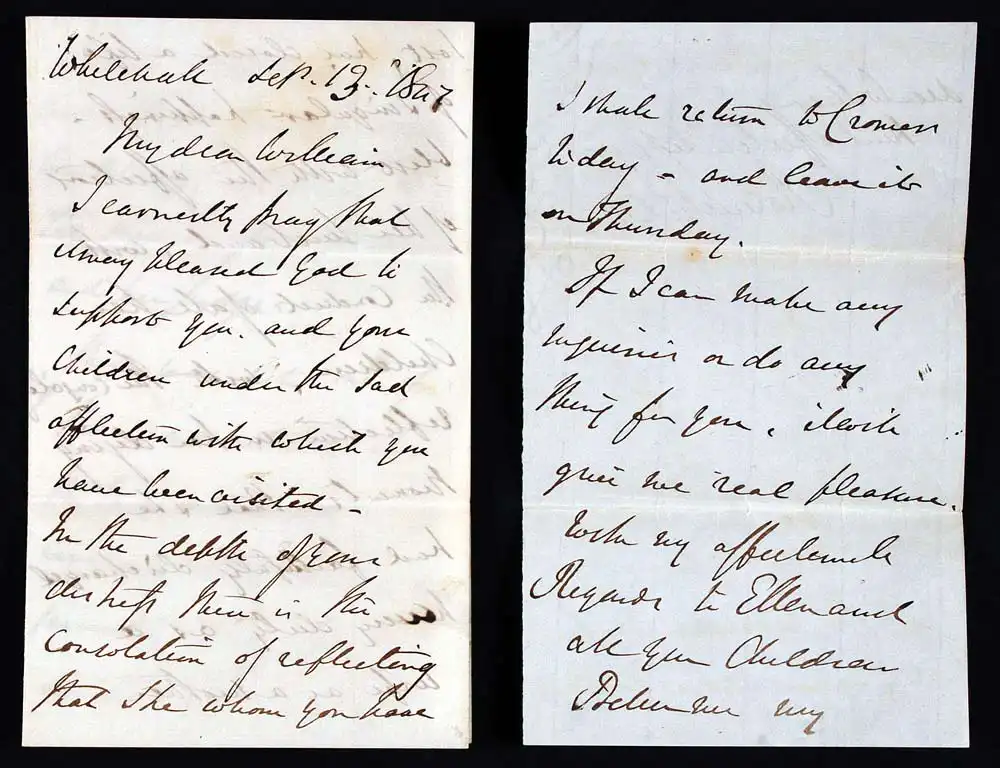 Whitehall Sep. 13. 1847
My dear William
I earnestly pray that
it may please God to
support you. and your
Children under the sad
affliction with which you
have been visited -
In the depth of your
distress there is the
consolation of reflecting
that she whom you have
I shall return to Cromer
today - and leave it
on Thursday.
If I can make any
inquiries or do any
thing for you, it will
give me real pleasure.
With my affectionate
Regards to Ellen and
all your Children
Believe me my